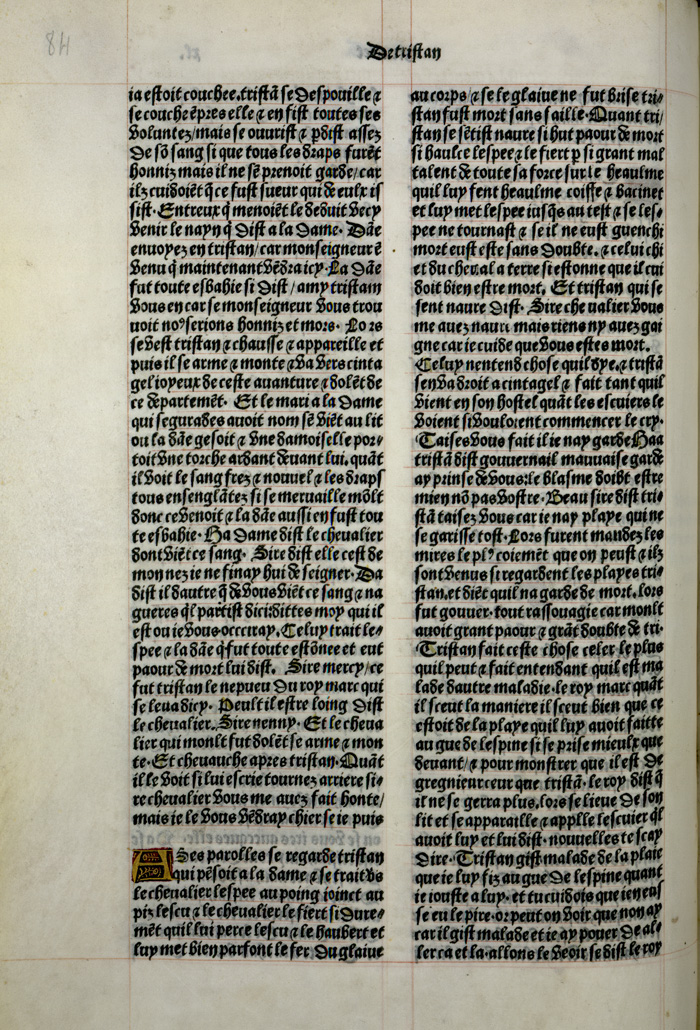 84
De tristan
ia estoit couchee. tristã se despouille ⁊
se couche ẽpres elle ⁊ en fist toutes ses
voluntez/ mais se ouurist ⁊ ꝑdist assez
de sõ sang si que tous les draps furẽt
honniz mais il ne sẽ prenoit garde/ car
ilz cuidoiẽt q̃ ce fust sueur qui de eulx is
sist. Entreux q̃ menoiẽt le deduit vecy
venir le nayn q̃ dist a la dame. Dãe
enuoyez en tristan/ car monseigneur ẽ
venu q̃ maintenant vẽdra icy. La dãe
fut toute esbahie si dist/ amy tristam
vous en car se monseigneur vous trou
uoit noꝰ serions honniz et mors. Lors
se vest tristan ⁊ chausse ⁊ appareille et
puis il se arme ⁊ monte ⁊ va vers cinta
gel ioyeux de ceste auanture ⁊ dolẽt de
ce departemẽt. Et le mari a la dame
qui segurades auoit nom sẽ viẽt au lit
ou la dãe gesoit ⁊ vne damoiselle por⸗
toit vne torche ardant deuant lui. quãt
il voit le sang frez ⁊ nouuel ⁊ les draps
tous ensenglãtez si se merueille mõlt
donc ce venoit ⁊ la dãe aussi en fust tou
te esbahie. Ha dame dist le cheualier
dont viẽt ce sang. Sire dist elle cest de
mon nez ie ne finay hui de seigner. Da
dist il dautre q̃ de vous viẽt ce sang ⁊ na
gueres ql̃ partist dici: dittes moy qui il
est ou ie vous occiray. Celuy trait le⸗
spee ⁊ la dãe q̃ fut toute estõnee et eut
paour de mort lui dist. Sire mercy/ ce
fut tristan le nepueu du roy marc qui
se leua dicy. Peult il estre loing dist
le cheualier. Sire nenny. Et le cheua
lier qui monlt fut dolẽt se arme ⁊ mon
te. Et cheuauche apres tristan. Quãt
il le voit si lui escrie tournez arriere si⸗
re cheualier vous me auez fait honte/
mais ie le vous vẽdray chier se ie puis
A Ses parolles se regarde tristan
qui pẽsoit a la dame ⁊ se trait vs
le cheualier lespee au poing ioinct au
piz lescu ⁊ le cheualier le fiert si dure⸗
mẽt quil lui perce lescu ⁊ le haubert et
luy met bien parfont le fer du glaiue
au corps/ ⁊ se le glaiue ne fut brise tri⸗
stan fust mort sans faille. Quant tri⸗
stan se sẽtist naure si hut paour de mort
si haulce lespee ⁊ le fiert ꝑ si grant mal
talent de toute sa force sur le heaulme
quil luy fent heaulme coiffe ⁊ bacinet
et luy met lespee iusq̃s au test ⁊ se les⸗
pee ne tournast ⁊ se il ne eust guenchi
mort eust este sans doubte. ⁊ celui chi
et du cheual a terre si estonne que il cui
doit bien estre mort. Et tristan qui se
sent naure dist. Sire cheualier vous
me auez naure mais riens ny auez gai
gne car ie cuide que vous estes mort.
Celuy nentend chose quil dye. ⁊ tristã
sen va droit a cintagel ⁊ fait tant quil
vient en son hostel quãt les escuiers le
voient si vouloient commencer le cry.
Taises vous fait il ie nay garde Haa
tristã dist gouuernail mauuaise garde
ay prinse de vous: le blasme doibt estre
mien nõ pas vostre. Beau sire dist tri⸗
stã taisez vous car ie nay playe qui ne
se garisse tost. Lors furent mandez les
mires le plꝰ coiemẽt que on peust ⁊ ilz
sont venus si regardent les playes tri⸗
stan. et diẽt quil na garde de mort. lors
fut gouuer. tout rassouagie car monlt
auoit grant paour ⁊ grãt doubte de tri.
Tristan fait ceste chose celer le plus
quil peut ⁊ fait entendant quil est ma
lade dautre maladie. le roy marc quãt
il sceut la maniere il sceut bien que ce
estoit de la playe quil luy auoit faitte
au gue de lespine si se prise mieulx que
deuant/ ⁊ pour monstrer que il est de
gregnieur ceur que tristã. le roy dist q̃
il ne se gerra plus. lors se lieue de son
lit et se apparaille ⁊ applle lescuier ql̃
auoit luy et lui dist. nouuelles te scay
dire. Tristan gist malade de la plaie
que ie luy fiz au gue de lespine quant
ie iouste a luy. et tu cuidois que ien eus
se eu le pire. or peut on voir que non ay
car il gist malade et ie ay pouer de al⸗
ler ca et la. allons le veoir se dist le roy